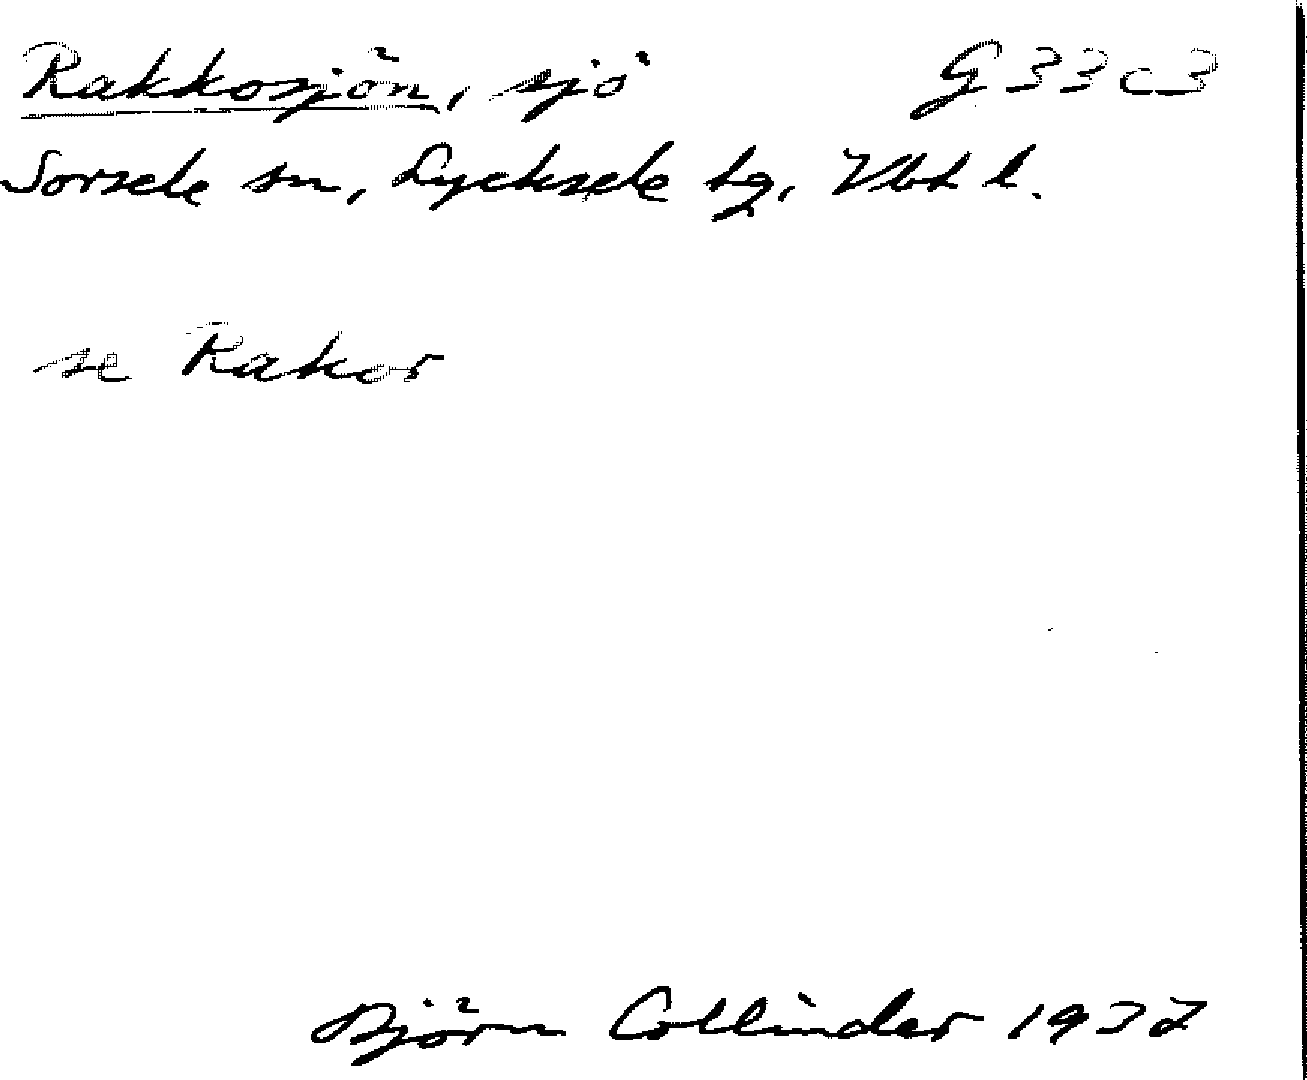 Rakkosjön, sjö G 33 c 3
Sorsele sn, Lycksele tg, Vbt l.
se Rakor
Björn Collinder 1937